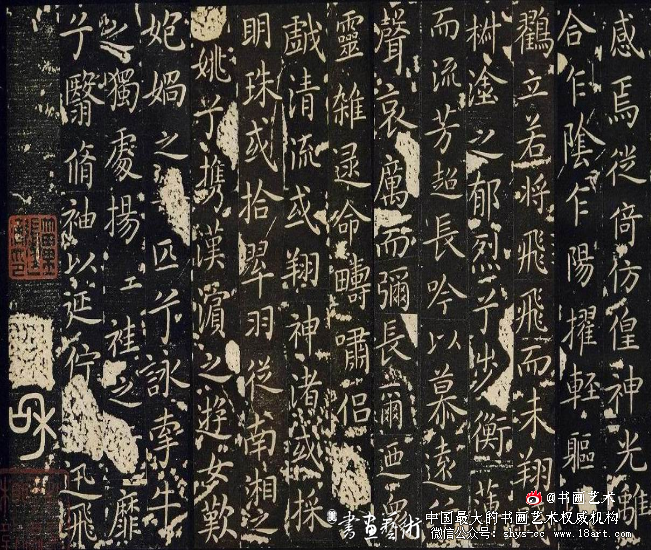 感焉徙倚仿偟神光離
合乍陰乍陽擢輕軀
鶴立若將飛飛而未翔
椒塗之郁烈兮步衡薄
而流芳超長吟以慕遠
聲哀厲而彌長爾迺眾
靈雜遝命疇嘯侶
戲清流或翔神渚或採
明珠或拾翠羽從南湘之
姚兮攜漢濱之遊女歎
妃媧之匹兮詠牽牛
之獨處揚袿之靡
兮翳脩袖以延佇迅飛
@书画艺术
書畫藝術
中国最大的书画艺术权威机构
微信公众号:shys-cc www.18art.com